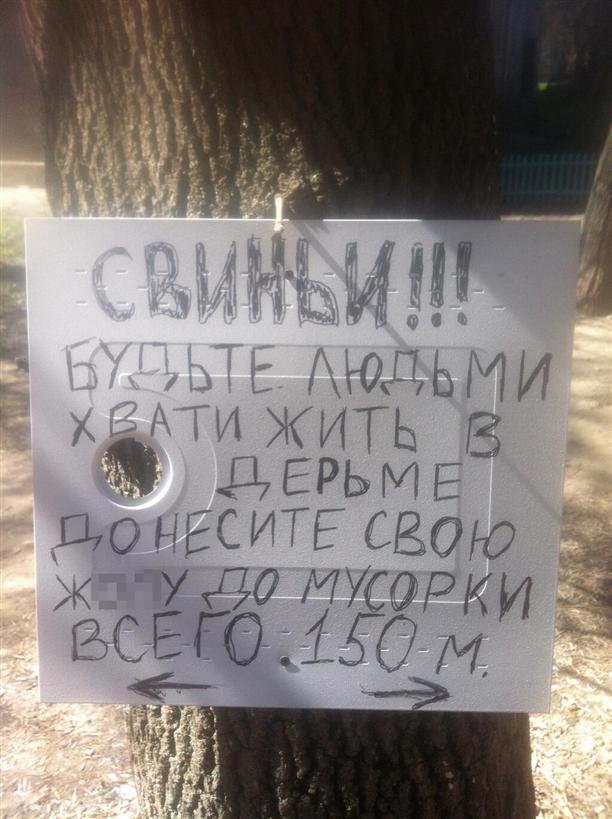 СВИНЬИ!!!
БУДЬТЕ ЛЮДЬМИ
ХВАТИ ЖИТЬ В
ДЕРЬМЕ
ДОНЕСИТЕ СВОЮ
ДО МУСОРКИ
ВСЕГО 150 М.